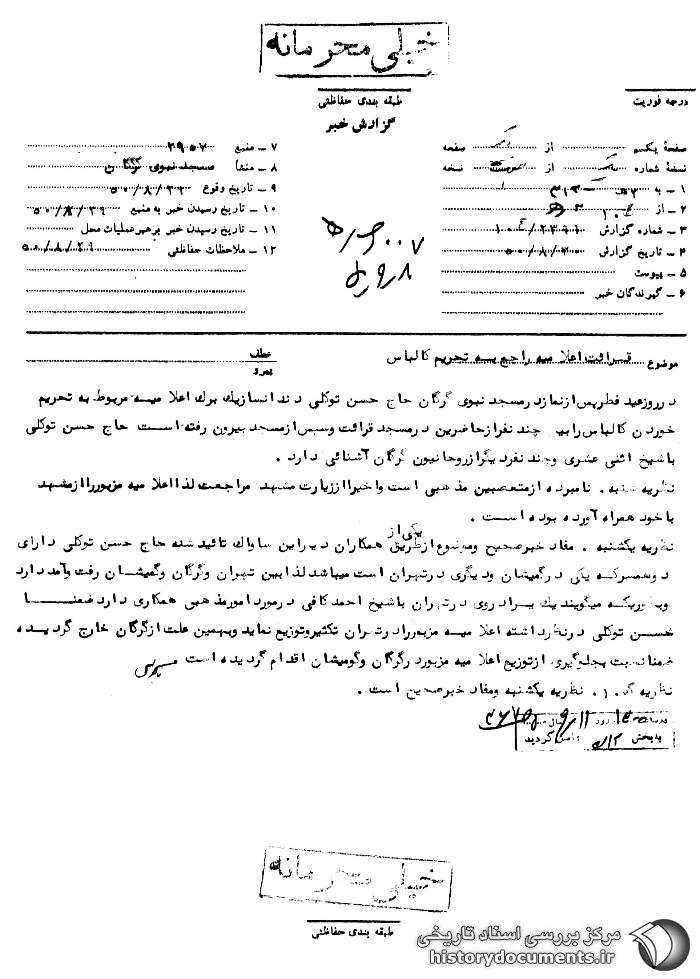 خیلی محرمانه
درجه فوریت
طبقه بندی حفاظتی
گزارش خبر
صفحه یکم از یک صفحه
نسخه شماره یک از نسخه
۱ - به
۲ - از
۳ - شماره گزارش
۴ - تاریخ گزارش ۵۰/۸/۳۰
۵ - پیوست
۶ - گیرندگان خبر
۷ - منبع ۲۹۵۷
۸ - منشأ مسجد نبوی گرگان
۹ - تاریخ وقوع
۱۰ - تاریخ رسیدن خبر به منبع ۵۰/۸/۲۹
۱۱ - تاریخ رسیدن خبر برهبر عملیات محل
۱۲ - ملاحظات حفاظتی ۵۰/۸/۲۹
موضوع قرائت اعلامیه راجع به تحریم کالباس
عطف
پیرو
در روز عید فطر پس از نماز در مسجد نبوی گرگان حاج حسن توکلی دندانساز یک برگ اعلامیه مربوط به تحریم
خوردن کالباس را بین چند نفر از حاضرین در مسجد قرائت و سپس از مسجد بیرون رفته است حاج حسن توکلی
با شیخ اثنی عشری و چند نفر دیگر از روحانیون گرگان آشنائی دارد .
نظریه شنبه . نامبرده از متعصبین مذهبی است و اخیرا از زیارت مشهد مراجعت لذا اعلامیه مزبور را از مشهد
با خود همراه آورده بوده است .
نظریه یکشنبه . مفاد خبر صحیح و موضوع از طریق یکی از همکاران دبیر این ساواک تائید شده حاج حسن توکلی دارای
دو همسر که یکی در گمیشان و دیگری در تهران است میباشد لذا بین تهران و گرگان و گمیشان رفت و آمد دارد
و بطوریکه میگویند یک برادر وی در تهران با شیخ احمد کافی در مورد امور مذهبی همکاری دارد ضمنا
حسن توکلی در نظر داشته اعلامیه مزبور را در تهران تکثیر و توزیع نماید و بهمین علت از گرگان خارج گردیده
ضمنا نسبت بجلوگیری از توزیع اعلامیه مزبور در گرگان و گومیشان اقدام گردیده است
نظریه ۱۰ک . نظریه یکشنبه و مفاد خبر صحیح است .
به بخش ۳۱۲ واصل گردید
خیلی محرمانه
طبقه بندی حفاظتی
مرکز بررسی اسناد تاریخی
historydocuments.ir